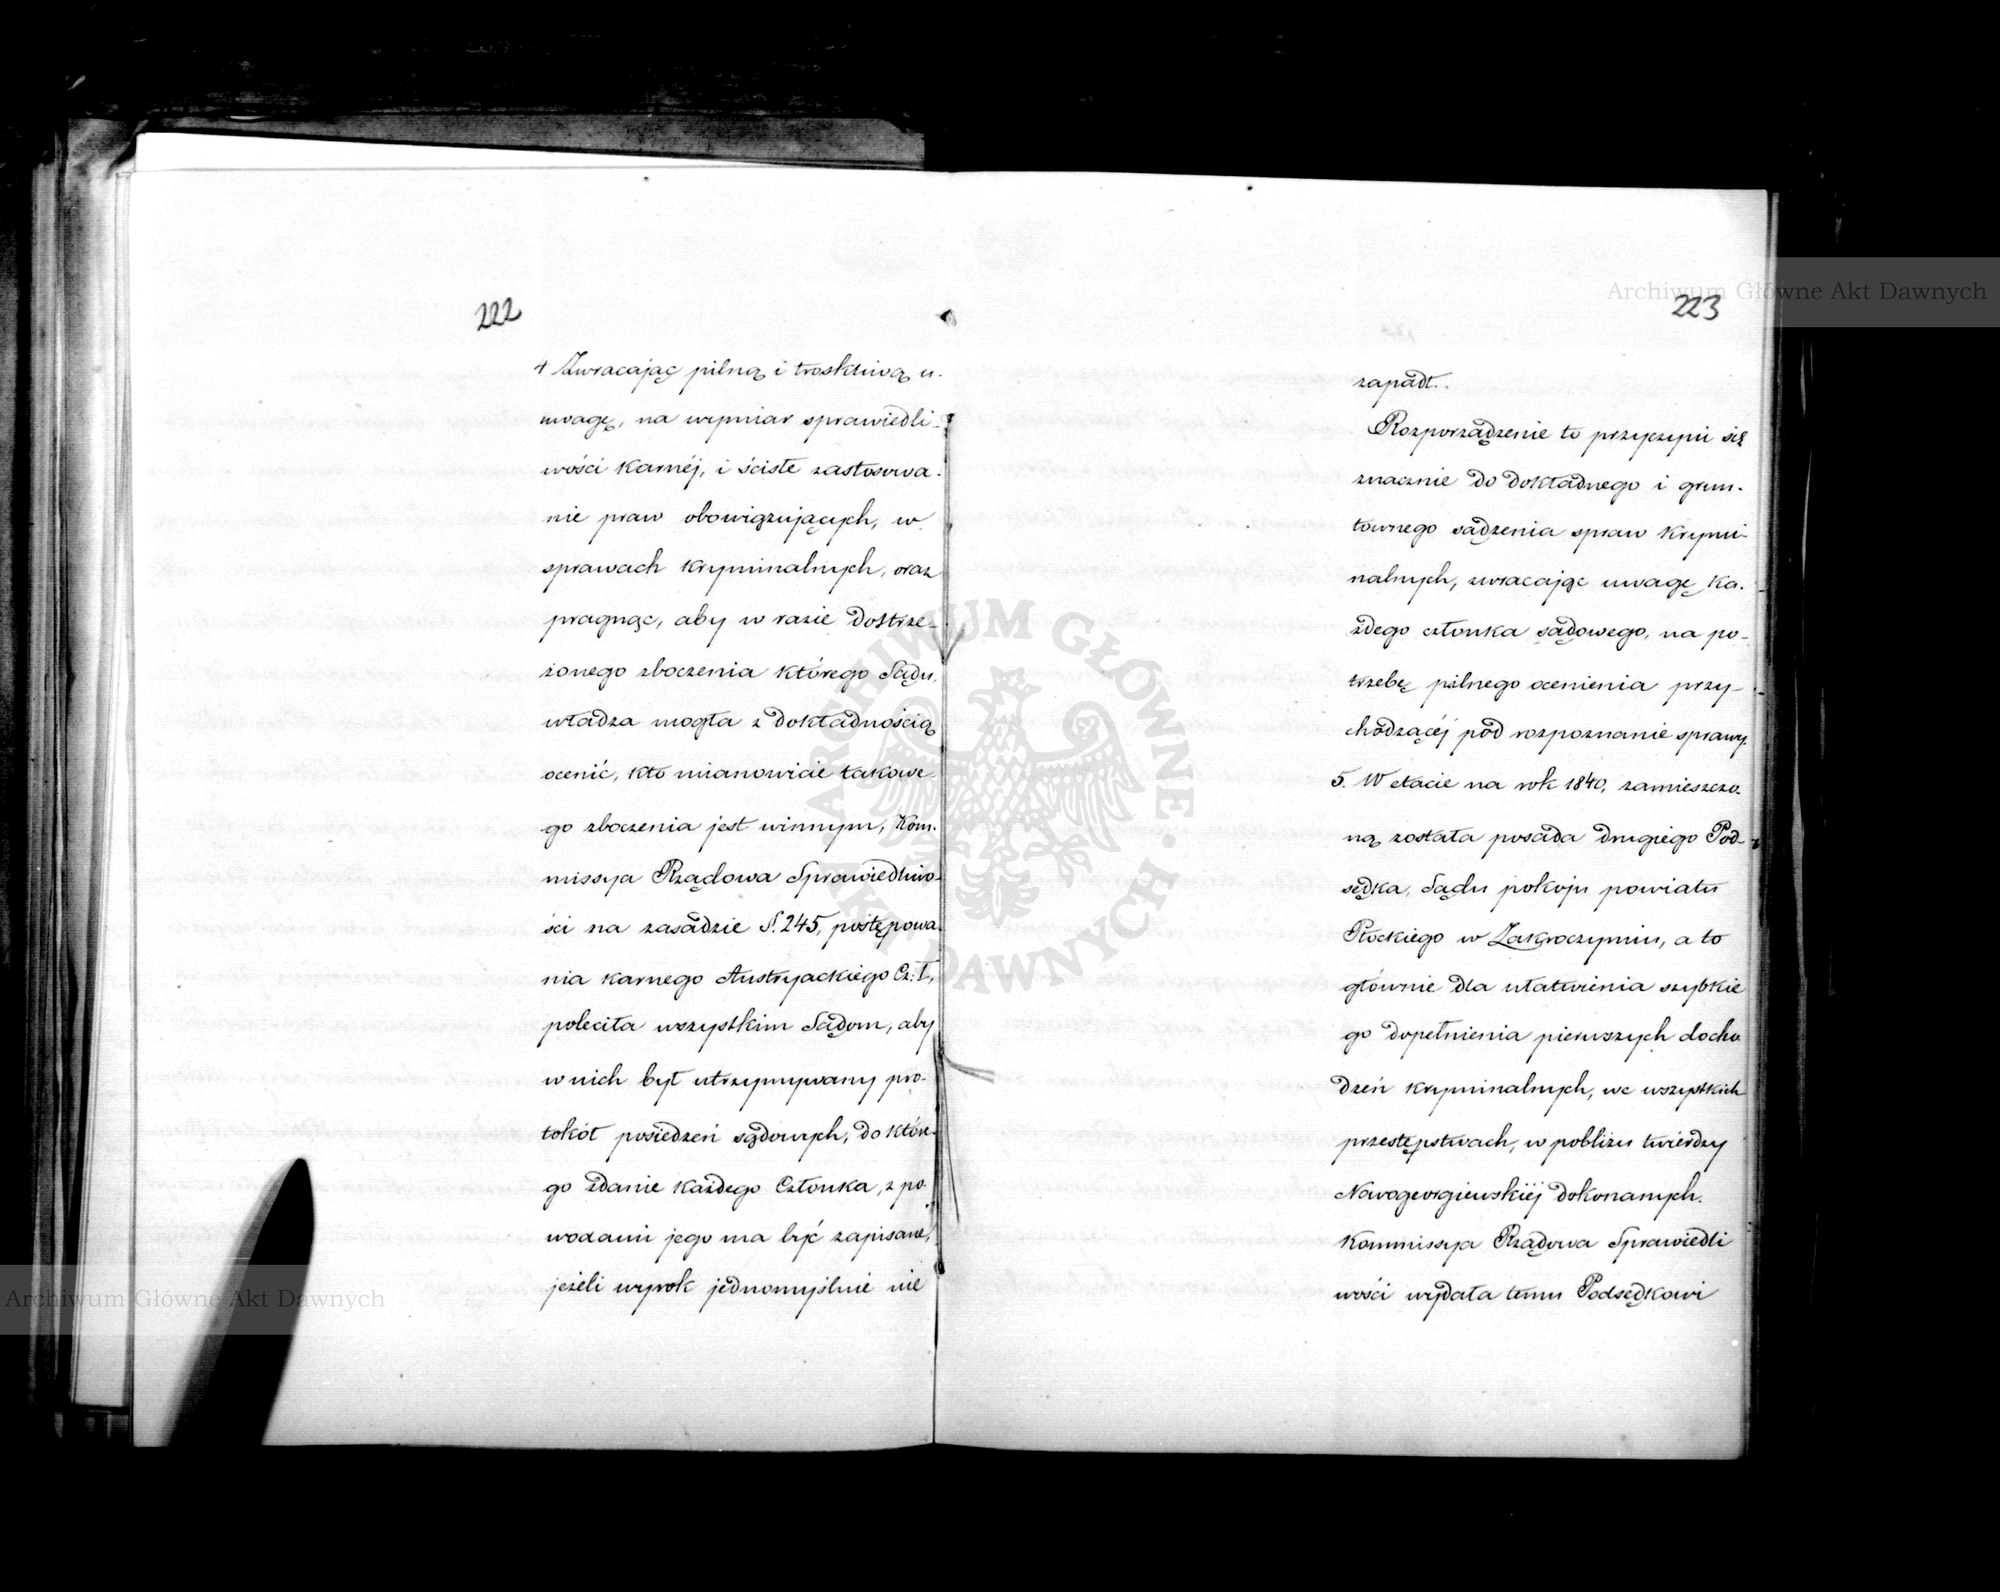 222
4 Zwracając pilną i troskliwą u-
uwagę, na wymiar sprawiedli-
wości Karnéj, i ścisłe zastosowa-
nie praw obowiązujących, w
sprawach Kryminalnych, oraz
pragnąc, aby w razie dostrze-
żonego zboczenia którego Sądu,
władza mogła z dokładnością
ocenić, kto mianowicie takowe-
go zboczenia jest winnym, Kom-
missya Rządowa Sprawiedliwo-
ści na zasadzie §. 245, postępowa-
nia karnego Austryackiego Cz: I,
poleciła wszystkim Sądom, aby
w nich był utrzymywany pro-
tokół posiedzeń sądowych, do które-
go zdanie Każdego Członka, z po-
wodami jego ma być zapisane,
jeżeli wyrok jednomyślnie nie
223
zapadł.
Rozporządzenie to przyczyni się
znacznie do dokładnego i grun-
townego sądzenia spraw Krymi-
nalnych, zwracając uwagę Ka-
żdego członka sądowego, na po-
trzebę pilnego ocenienia przy-
chodzącéj pod rozpoznanie sprawy.
5. W etacie na rok 1840, zamieszczo-
ną została posada drugiego Pod-
sędka, Sądu pokoju powiatu
Płockiego w Zakroczymiu, a to
głównie dla ułatwienia szybkie
go dopełnienia pierwszych docho
dzeń kryminalnych, we wszystkich
przestępstwach, w pobliżu twierdzy
Nowogeorgiewskiéj dokonanych.
Kommissya Rządowa Sprawiedli
wości wydała temu Podsędkowi
Archiwum Główne Akt Dawnych
Archiwum Główne Akt Dawnych
ARCHIWUM GŁÓWNE AKT DAWNYCH